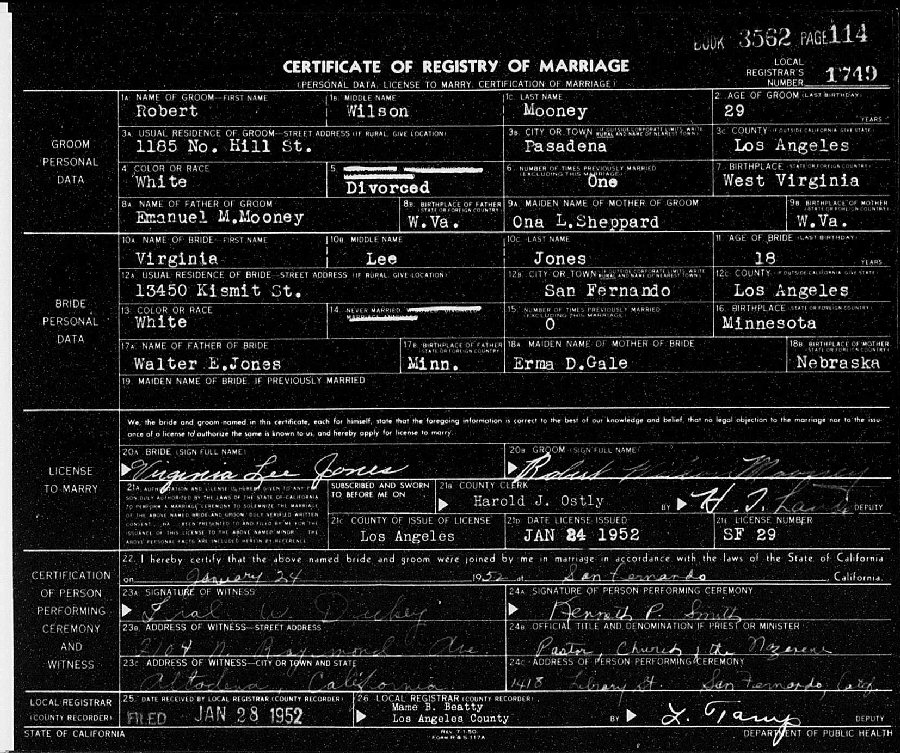 BOOK 3562 PAGE 114
CERTIFICATE OF REGISTRY OF MARRIAGE
(PERSONAL DATA, LICENSE TO MARRY, CERTIFICATION OF MARRIAGE)
LOCAL REGISTRAR'S NUMBER 1749
GROOM PERSONAL DATA
1A. NAME OF GROOM—FIRST NAME 1B. MIDDLE NAME 1C. LAST NAME 2. AGE OF GROOM (LAST BIRTHDAY)
Robert Wilson Mooney 29 YEARS
3A. USUAL RESIDENCE OF GROOM—STREET ADDRESS (IF RURAL, GIVE LOCATION) 3B. CITY OR TOWN 3C. COUNTY (IF OUTSIDE CALIFORNIA GIVE STATE)
1185 No. Hill St. Pasadena Los Angeles
4. COLOR OR RACE 5. 6. NUMBER OF TIMES PREVIOUSLY MARRIED (EXCLUDING THIS MARRIAGE) 7. BIRTHPLACE (STATE OR FOREIGN COUNTRY)
White Divorced One West Virginia
8A. NAME OF FATHER OF GROOM 8B. BIRTHPLACE OF FATHER (STATE OR FOREIGN COUNTRY) 9A. MAIDEN NAME OF MOTHER OF GROOM 9B. BIRTHPLACE OF MOTHER (STATE OR FOREIGN COUNTRY)
Emanuel M.Mooney W.Va. Ona L.Sheppard W.Va.
BRIDE PERSONAL DATA
10A. NAME OF BRIDE—FIRST NAME 10B. MIDDLE NAME 10C. LAST NAME 11. AGE OF BRIDE (LAST BIRTHDAY)
Virginia Lee Jones 18 YEARS
12A. USUAL RESIDENCE OF BRIDE—STREET ADDRESS (IF RURAL, GIVE LOCATION) 12B. CITY OR TOWN 12C. COUNTY (IF OUTSIDE CALIFORNIA GIVE STATE)
13450 Kismit St. San Fernando Los Angeles
13. COLOR OR RACE 14. NEVER MARRIED, 15. NUMBER OF TIMES PREVIOUSLY MARRIED (EXCLUDING THIS MARRIAGE) 16. BIRTHPLACE (STATE OR FOREIGN COUNTRY)
White 0 Minnesota
17A. NAME OF FATHER OF BRIDE 17B. BIRTHPLACE OF FATHER (STATE OR FOREIGN COUNTRY) 18A. MAIDEN NAME OF MOTHER OF BRIDE 18B. BIRTHPLACE OF MOTHER (STATE OR FOREIGN COUNTRY)
Walter E.Jones Minn. Erma D.Gale Nebraska
19. MAIDEN NAME OF BRIDE, IF PREVIOUSLY MARRIED
LICENSE TO MARRY
We, the bride and groom named in this certificate, each for himself, state that the foregoing information is correct to the best of our knowledge and belief, that no legal objection to the marriage nor to the issu-
ance of a license to authorize the same is known to us, and hereby apply for license to marry.
20A. BRIDE (SIGN FULL NAME) 20B. GROOM (SIGN FULL NAME)
Virginia Lee Jones Robert Wilson Mooney
21A. AUTHORIZATION AND LICENSE IS HEREBY GIVEN TO ANY PER-
SON DULY AUTHORIZED BY THE LAWS OF THE STATE OF CALIFORNIA
TO PERFORM A MARRIAGE CEREMONY TO SOLEMNIZE THE MARRIAGE
OF THE ABOVE NAMED BRIDE AND GROOM
SUBSCRIBED AND SWORN TO BEFORE ME ON 21B. COUNTY CLERK
Harold J. Ostly BY DEPUTY
21C. COUNTY OF ISSUE OF LICENSE 21D. DATE LICENSE ISSUED 21E. LICENSE NUMBER
Los Angeles JAN 24 1952 SF 29
CERTIFICATION OF PERSON PERFORMING CEREMONY AND WITNESS
22. I hereby certify that the above named bride and groom were joined by me in marriage in accordance with the laws of the State of California
on January 24 1952 at San Fernando, California.
23A. SIGNATURE OF WITNESS 24A. SIGNATURE OF PERSON PERFORMING CEREMONY
Kenneth P. Smith
23B. ADDRESS OF WITNESS—STREET ADDRESS 24B. OFFICIAL TITLE AND DENOMINATION IF PRIEST OR MINISTER
N. Raymond Ave. Pastor, Church of the Nazarene
23C. ADDRESS OF WITNESS—CITY OR TOWN AND STATE 24C. ADDRESS OF PERSON PERFORMING CEREMONY
Altadena California 1418 Library St. San Fernando, Calif.
LOCAL REGISTRAR (COUNTY RECORDER)
25. DATE RECEIVED BY LOCAL REGISTRAR (COUNTY RECORDER) 26. LOCAL REGISTRAR (COUNTY RECORDER)
FILED JAN 28 1952 Mame B. Beatty
Los Angeles County BY DEPUTY
STATE OF CALIFORNIA DEPARTMENT OF PUBLIC HEALTH